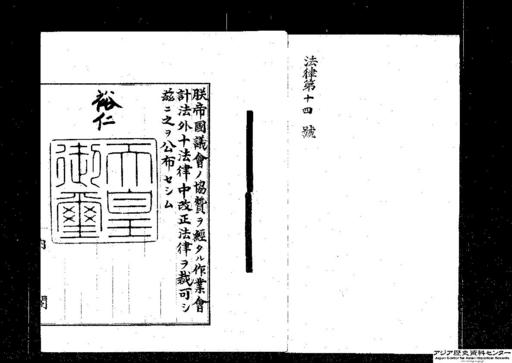 法律第十四號
朕帝國議會ノ協贊ヲ經タル作業會
計法外十法律中改正法律ヲ裁可シ
茲ニ之ヲ公布セシム
裕仁
天皇
御璽
内
閣
アジア歴史資料センター
Japan Center for Asian Historical Records